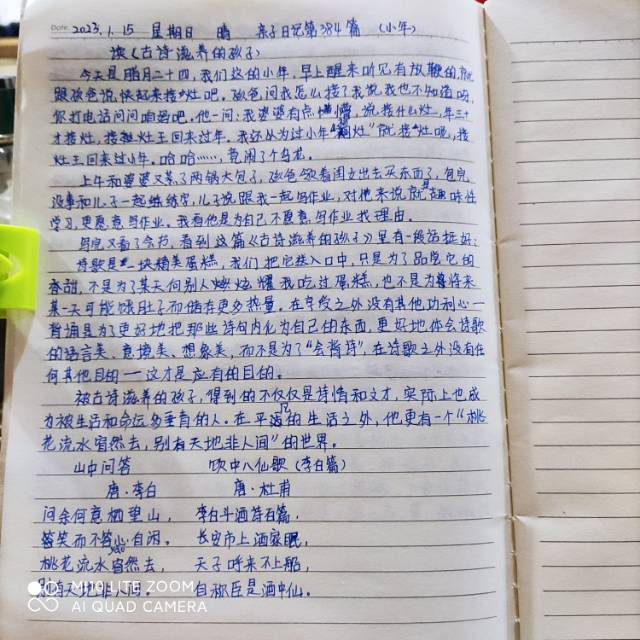 Date 2023.1.15 星期日 晴 亲子日记第384篇 (小年)
读《古诗滋养的孩子》
今天是腊月二十四,我们这的小年,早上醒来听见有放鞭的,就
跟孩爸说,快起来接灶吧。孩爸问我怎么接?我说我也不知道哟,
你打电话问问咱爸吧。他一问,我婆婆有点懵,说接什么灶,年三十
才接灶,接灶王回来过年。我还以为过小年"祭灶"就接灶呢,接
灶王回来过小年。哈哈……,竟闹了个乌龙。
上午和婆婆又蒸了两锅大包子,孩爸领着闺女出去买东西了,包完
没事和儿子一起练练字,儿子说跟我一起写作业,对他来说就是趣味性
学习,更愿意写作业。我看他是为自己不愿意写作业找理由。
写完又看了会书,看到这篇《古诗滋养的孩子》里有一段话挺好:
诗歌是一块精美蛋糕,我们把它送入口中,只是为了品尝它的
香甜,不是为了某天向别人炫耀我吃过蛋糕,也不是为着将来
某一天可能饿肚子而储存更多热量。在享受之外没有其他功利心—
背诵是为了更好地把那些诗句内化为自己的东西,更好地体会诗歌
的语言美、意境美、想象美,而不是为了"会背诗",在诗歌之外没有任
何其他目的——这才是应有的目的。
被古诗滋养的孩子,得到的不仅仅是诗情和文才,实际上也成
为被生活和命运多垂青的人。在平凡的生活之外,他更有一个"桃
花流水窅然去,别有天地非人间"的世界。
山中问答 饮中八仙歌(李白篇)
唐·李白 唐·杜甫
问余何意栖碧山, 李白斗酒诗百篇,
笑而不答心自闲。 长安市上酒家眠,
桃花流水窅然去, 天子呼来不上船,
别有天地非人间。 自称臣是酒中仙。
MI 10 LITE ZOOM
AI QUAD CAMERA